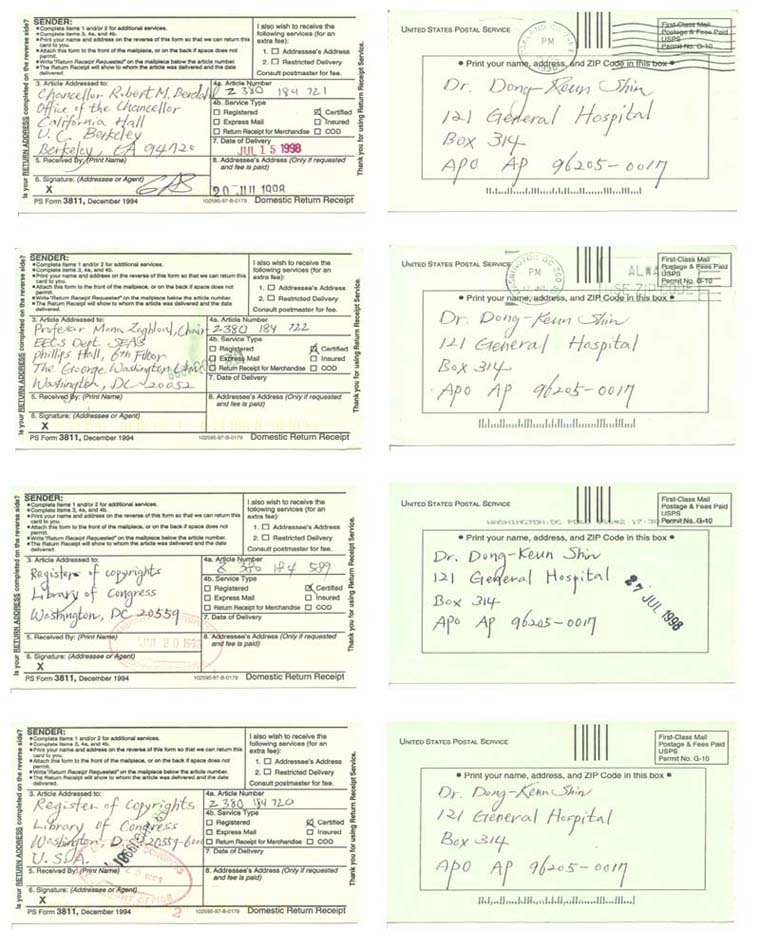 SENDER:
Complete items 1 and/or 2 for additional services.
Complete items 3, 4a, and 4b.
Print your name and address on the reverse of this form so that we can return this card to you.
Attach this form to the front of the mailpiece, or on the back if space does not permit.
Write "Return Receipt Requested" on the mailpiece below the article number.
The Return Receipt will show to whom the article was delivered and the date delivered.
I also wish to receive the following services (for an extra fee):
1. Addressee's Address
2. Restricted Delivery
Consult postmaster for fee.
3. Article Addressed to:
Chancellor Robert M. Berdahl
Office of the Chancellor
California Hall
U.C. Berkeley
Berkeley, CA 94720
4a. Article Number
Z 380 184 721
4b. Service Type
Registered Certified
Express Mail Insured
Return Receipt for Merchandise COD
7. Date of Delivery
JUL 15 1998
5. Received By: (Print Name)
8. Addressee's Address (Only if requested and fee is paid)
6. Signature: (Addressee or Agent)
X
20 JUL 1998
PS Form 3811, December 1994
102595-97-B-0179 Domestic Return Receipt
Is your RETURN ADDRESS completed on the reverse side?
Thank you for using Return Receipt Service.
UNITED STATES POSTAL SERVICE
PM
First-Class Mail
Postage & Fees Paid
USPS
Permit No. G-10
Print your name, address, and ZIP Code in this box
Dr. Dong-Keun Shin
121 General Hospital
Box 314
APO AP 96205-0017
SENDER:
Complete items 1 and/or 2 for additional services.
Complete items 3, 4a, and 4b.
Print your name and address on the reverse of this form so that we can return this card to you.
Attach this form to the front of the mailpiece, or on the back if space does not permit.
Write "Return Receipt Requested" on the mailpiece below the article number.
The Return Receipt will show to whom the article was delivered and the date delivered.
I also wish to receive the following services (for an extra fee):
1. Addressee's Address
2. Restricted Delivery
Consult postmaster for fee.
3. Article Addressed to:
Professor Mona Zaghloul, Chair
EECS Dept. SEAS
Phillips Hall, 6th Floor
The George Washington
Washington, DC 20052
4a. Article Number
Z 380 184 722
4b. Service Type
Registered Certified
Express Mail Insured
Return Receipt for Merchandise COD
7. Date of Delivery
5. Received By: (Print Name)
8. Addressee's Address (Only if requested and fee is paid)
6. Signature: (Addressee or Agent)
X
PS Form 3811, December 1994
102595-97-B-0179 Domestic Return Receipt
Is your RETURN ADDRESS completed on the reverse side?
Thank you for using Return Receipt Service.
UNITED STATES POSTAL SERVICE
PM
First-Class Mail
Postage & Fees Paid
USPS
Permit No. G-10
Print your name, address, and ZIP Code in this box
Dr. Dong-Keun Shin
121 General Hospital
Box 314
APO AP 96205-0017
SENDER:
Complete items 1 and/or 2 for additional services.
Complete items 3, 4a, and 4b.
Print your name and address on the reverse of this form so that we can return this card to you.
Attach this form to the front of the mailpiece, or on the back if space does not permit.
Write "Return Receipt Requested" on the mailpiece below the article number.
The Return Receipt will show to whom the article was delivered and the date delivered.
I also wish to receive the following services (for an extra fee):
1. Addressee's Address
2. Restricted Delivery
Consult postmaster for fee.
3. Article Addressed to:
Register of copyrights
Library of Congress
Washington, DC 20559
4a. Article Number
Z 380 184 589
4b. Service Type
Registered Certified
Express Mail Insured
Return Receipt for Merchandise COD
7. Date of Delivery
JUL 20 1998
5. Received By: (Print Name)
8. Addressee's Address (Only if requested and fee is paid)
6. Signature: (Addressee or Agent)
X
PS Form 3811, December 1994
102595-97-B-0179 Domestic Return Receipt
Is your RETURN ADDRESS completed on the reverse side?
Thank you for using Return Receipt Service.
UNITED STATES POSTAL SERVICE
First-Class Mail
Postage & Fees Paid
USPS
Permit No. G-10
Print your name, address, and ZIP Code in this box
Dr. Dong-Keun Shin
121 General Hospital
Box 314
APO AP 96205-0017
27 JUL 1998
SENDER:
Complete items 1 and/or 2 for additional services.
Complete items 3, 4a, and 4b.
Print your name and address on the reverse of this form so that we can return this card to you.
Attach this form to the front of the mailpiece, or on the back if space does not permit.
Write "Return Receipt Requested" on the mailpiece below the article number.
The Return Receipt will show to whom the article was delivered and the date delivered.
I also wish to receive the following services (for an extra fee):
1. Addressee's Address
2. Restricted Delivery
Consult postmaster for fee.
3. Article Addressed to:
Register of Copyrights
Library of Congress
Washington, D.C. 20559-6000
U.S.A.
4a. Article Number
Z 380 184 720
4b. Service Type
Registered Certified
Express Mail Insured
Return Receipt for Merchandise COD
7. Date of Delivery
5. Received By: (Print Name)
8. Addressee's Address (Only if requested and fee is paid)
6. Signature: (Addressee or Agent)
X
2
PS Form 3811, December 1994
102595-97-B-0179 Domestic Return Receipt
Is your RETURN ADDRESS completed on the reverse side?
Thank you for using Return Receipt Service.
UNITED STATES POSTAL SERVICE
First-Class Mail
Postage & Fees Paid
USPS
Permit No. G-10
Print your name, address, and ZIP Code in this box
Dr. Dong-Keun Shin
121 General Hospital
Box 314
APO AP 96205-0017